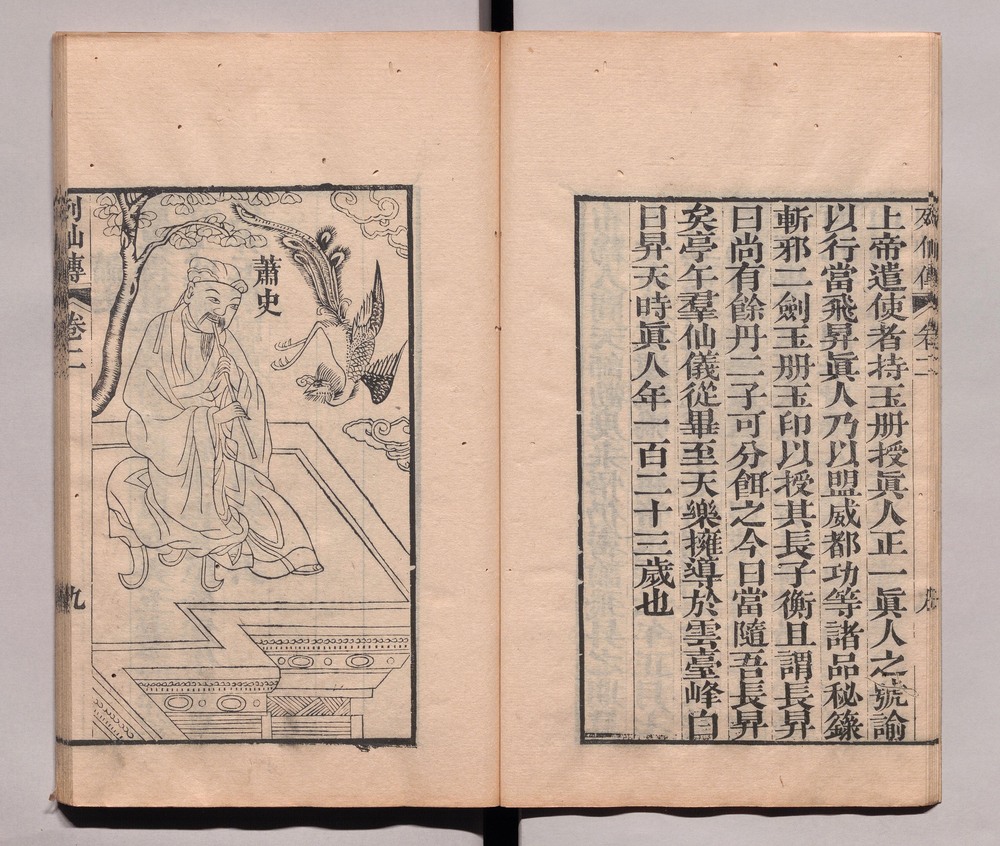 列仙傳 卷二
上帝遣使者持玉册授眞人正一眞人之號諭
以行當飛昇眞人乃以盟威都功等諸品秘籙
斬邪二劍玉册玉印以授其長子衡且謂長昇
曰尚有餘丹二子可分餌之今日當隨吾長昇
矣亭午羣仙儀從畢至天樂擁導於雲臺峰白
日昇天時眞人年一百二十三歲也
蕭史
列仙傳 卷二 九